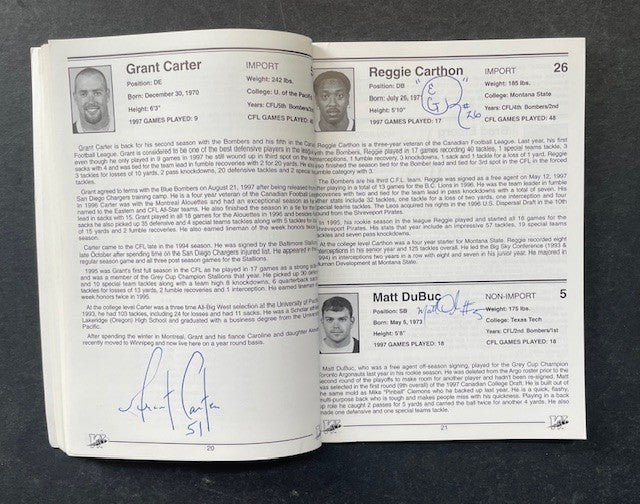 Grant Carter
IMPORT
5
Position: DE
Weight: 242 lbs.
Born: December 30, 1970
College: U. of the Pacific
Height: 6'3"
Years: CFL/5th Bombers/
1997 GAMES PLAYED: 9
CFL GAMES PLAYED:
Grant Carter is back for his second season with the Bombers and his fifth in the Cana
Football League. Grant is considered to be one of the best defensive players in the league
even though he only played in 9 games in 1997 he still wound up in third spot on the
sacks with 4 and was tied for the team lead in fumble recoveries with 2 for 20 yards. He
3 tackles for losses of 10 yards, 2 pass knockdowns, 20 defensive tackles and 2 special
tackles.
Grant agreed to terms with the Blue Bombers on August 21, 1997 after being released from
San Diego Chargers training camp. He is a four year veteran of the Canadian Football
In 1996 Carter was with the Montreal Alouettes and had an exceptional season as
named to the Eastern and CFL All-Star teams. He also finished the season in a tie for
lead in sacks with 15. Grant played in all 18 games for the Alouettes in 1996 and besides
sacks he also picked up 35 defensive and 4 special teams tackles along with 5 tackles for
of 15 yards and 2 fumble recoveries. He also earned lineman of the week honors
season.
Carter came to the CFL late in the 1994 season. He was signed by the Baltimore
late October after spending time on the San Diego Chargers injured list. He appeared in
regular season game and all three post season games for the Stallions.
1995 was Grant's first full season in the CFL as he played in 17 games as a strong
and was a member of the Grey Cup Champion Stallions that year. He picked up 30
and 10 special team tackles along with a team high 8 knockdowns, 6 quarterback
tackles for losses of 13 yards, 2 fumble recoveries and 1 interception. He earned lineman
week honors twice in 1995.
At the college level Carter was a three time All-Big West selection at the University of
1993, he had 103 tackles, including 24 for losses and had 11 sacks. He was a Scholar
Lakeridge (Oregon) High School and graduated with a business degree from the University
Pacific.
After spending the winter in Montreal, Grant and his fiance Caroline and daughter
recently moved to Winnipeg and now live here on a year round basis.
Grant Carter
51
20
Reggie Carthon
IMPORT
26
Position: DB
Weight: 185 lbs.
Born: July 25, 197
College: Montana State
Height: 5'10"
Years: CFL/4th Bombers/2nd
1997 GAMES PLAYED: 17
CFL GAMES PLAYED: 48
#26
Reggie Carthon is a three-year veteran of the Canadian Football League. Last year, his first
with the Bombers, Reggie played in 17 games recording 40 tackles, 1 special teams tackle, 3
interceptions, 1 fumble recovery, 3 knockdowns, 1 sack and 1 tackle for a loss of 1 yard. Reggie
also finished the season tied for the Bomber lead and tied for 3rd spot in the CFL in the forced
fumble category with 3.
The Bombers are his third C.F.L. team. Reggie was signed as a free agent on May 12, 1997
after playing in a total of 13 games for the B.C. Lions in 1996. He was the team leader in fumble
recoveries with two and tied for the team lead in pass knockdowns with a total of seven. His
other stats include 32 tackles, one tackle for a loss of two yards, one interception and four
special teams tackles. The Leos acquired his rights in the 1996 U.S. Dispersal Draft in the 10th
round from the Shreveport Pirates.
In 1995, his rookie season in the league Reggie played and started all 18 games for the
Shreveport Pirates. His stats that year include an impressive 57 tackles, 19 special teams
tackles and seven pass knockdowns.
At the college level Carthon was a four year starter for Montana State. Reggie recorded eight
interceptions in his senior year and 125 tackles overall. He led the Big Sky Conference (1993 &
1994) in interceptions two years in a row with eight and seven in his junior year. He majored in
Human Development at Montana State.
Matt DuBuc
NON-IMPORT
5
Position: SB
Weight: 175 lbs.
Born: May 5, 1973
College: Texas Tech
Height: 5'8"
Years: CFL/2nd Bombers/1st
1997 GAMES PLAYED: 18
CFL GAMES PLAYED: 18
#5
Matt DuBuc, who was a free agent off-season signing, played for the Grey Cup Champion
Toronto Argonauts last year in his rookie season. He was deleted from the Argo roster prior to the
second round of the playoffs to make room for another player and hadn't been re-signed. Matt
was selected in the first round (9th overall) of the 1997 Canadian College Draft. He is built out of
the same mold as Mike "Pinball" Clemons who he backed up last year. He is a quick, flashy,
multi-purpose back who is tough and makes people miss with his quickness. Playing in a back
up role he caught 2 passes for 5 yards and carried the ball twice for another 4 yards. He also
made one defensive and one special teams tackle.
21